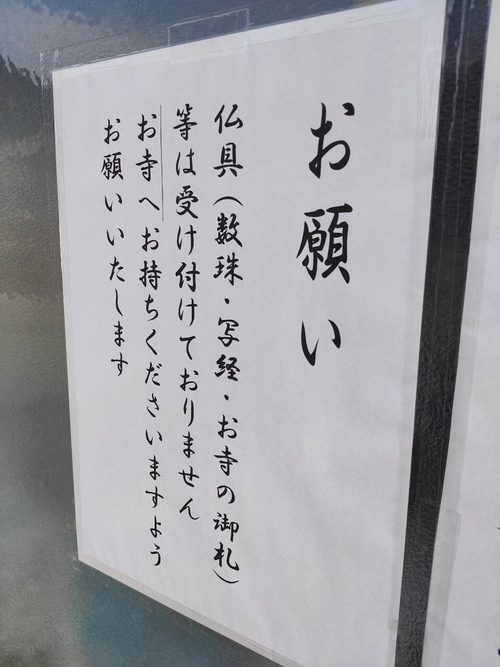 お願い
仏具(数珠・写経・お寺の御札)
等は受け付けておりません
お寺へお持ちくださいますよう
お願いいたします